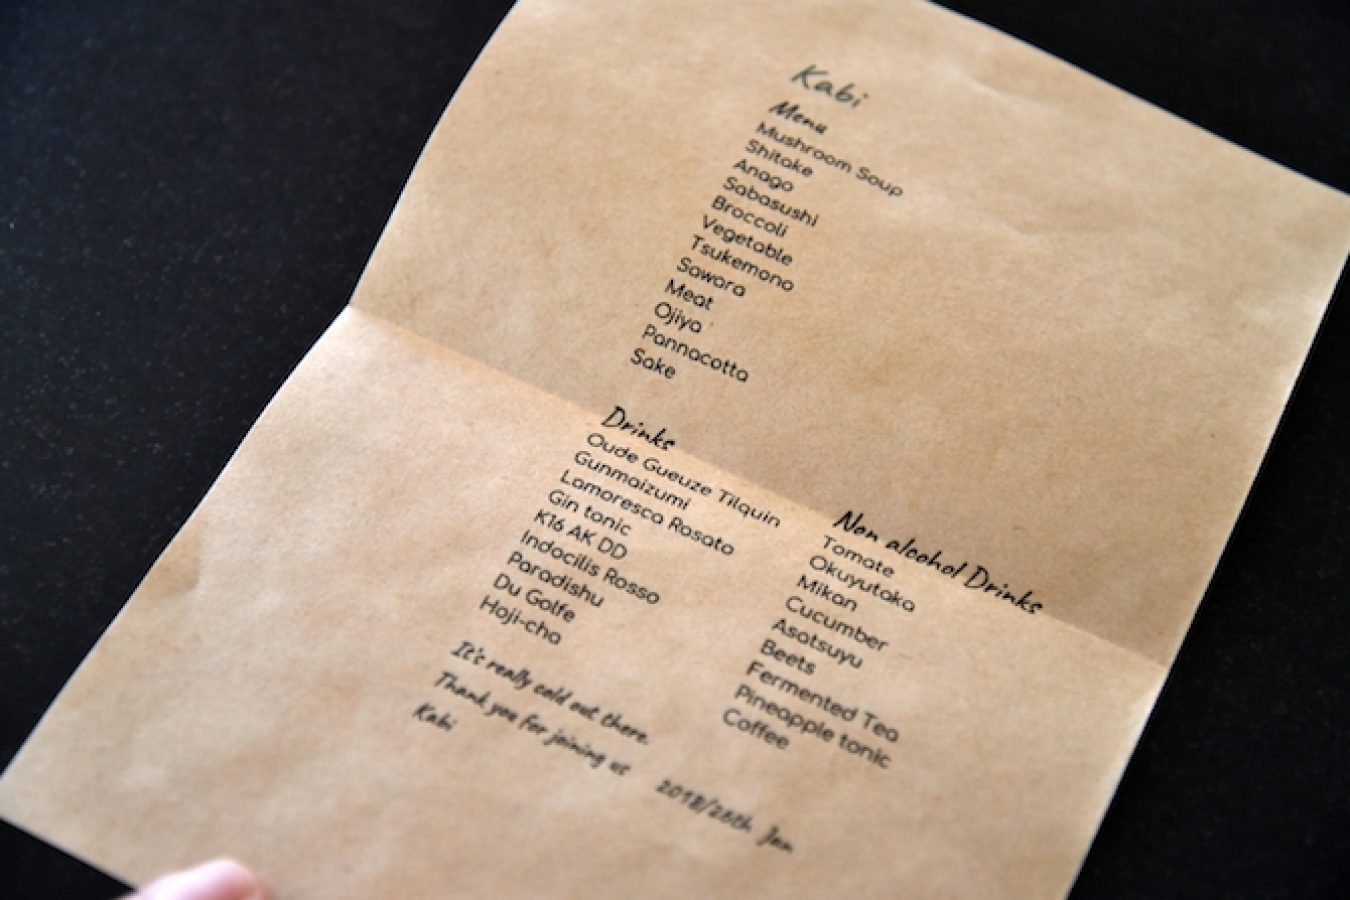 Kabi
Menu
Mushroom Soup
Shitake
Anago
Sabasushi
Broccoli
Vegetable
Tsukemono
Sawara
Meat
Ojiya
Pannacotta
Sake
Drinks
Oude Gueuze Tilquin
Gunmaizumi
Lamoresca Rosato
Gin tonic
K16 AK DD
Indocilis Rosso
Paradishu
Du Golfe
Hoji-cha
Non alcohol Drinks
Tomate
Okuyutaka
Mikan
Cucumber
Asatsuyu
Beets
Fermented Tea
Pineapple tonic
Coffee
It's really cold out there.
Thank you for joining us
Kabi
2018/26th Jan